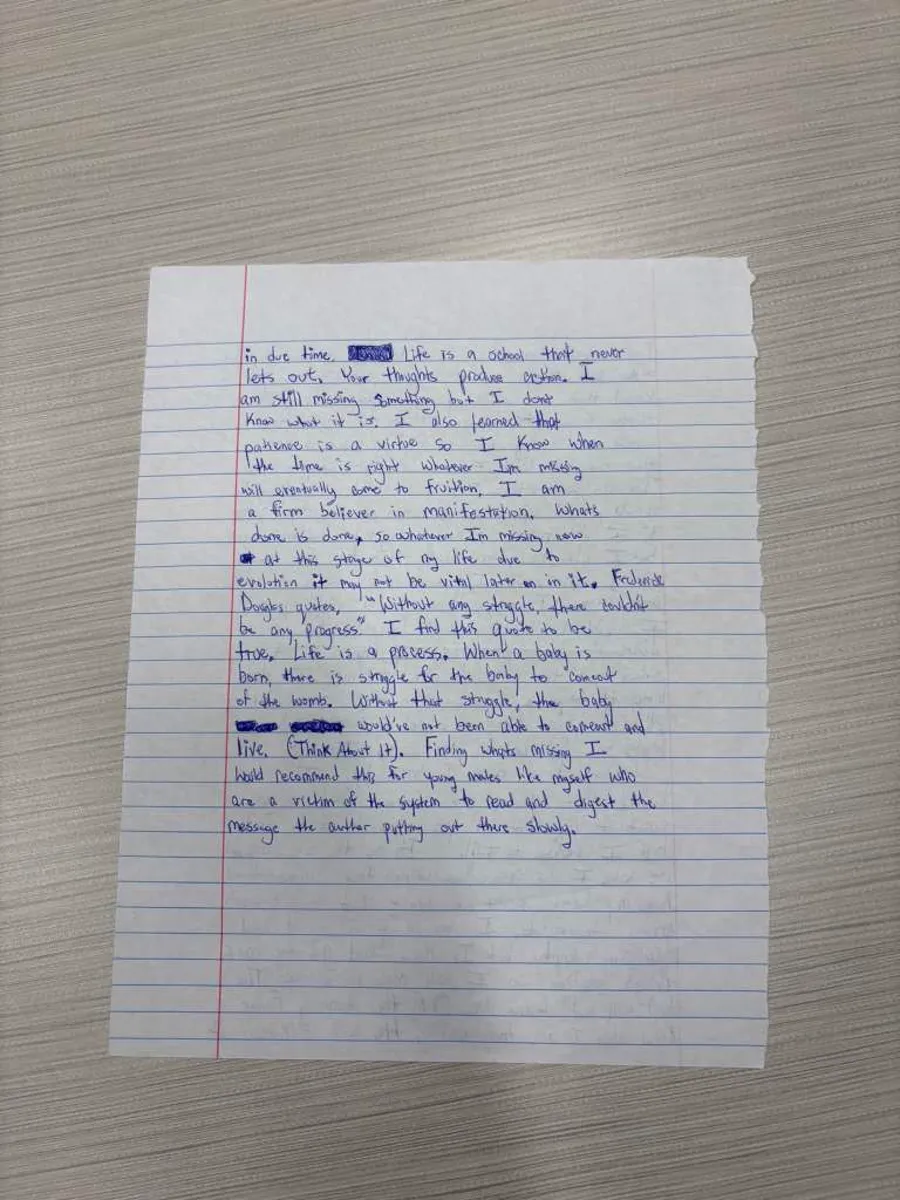 in due time. Life is a school that never
lets out. Your thoughts produce action. I
am still missing something but I dont
know what it is. I also learned that
patience is a virtue so I know when
the time is right whatever Im missing
will eventually come to fruition. I am
a firm believer in manifestation. Whats
done is done, so whatever Im missing now
at this stage of my life due to
evolution it may not be vital later on in it. Frederick
Douglas quotes, "Without any struggle, there couldn't
be any progress" I find this quote to be
true. Life is a process. When a baby is
born, there is struggle for the baby to comeout
of the womb. Without that struggle, the baby
would've not been able to comeout and
live. (Think About It). Finding whats missing I
would recommend this for young males like myself who
are a victim of the system to read and digest the
message the author putting out there slowly.